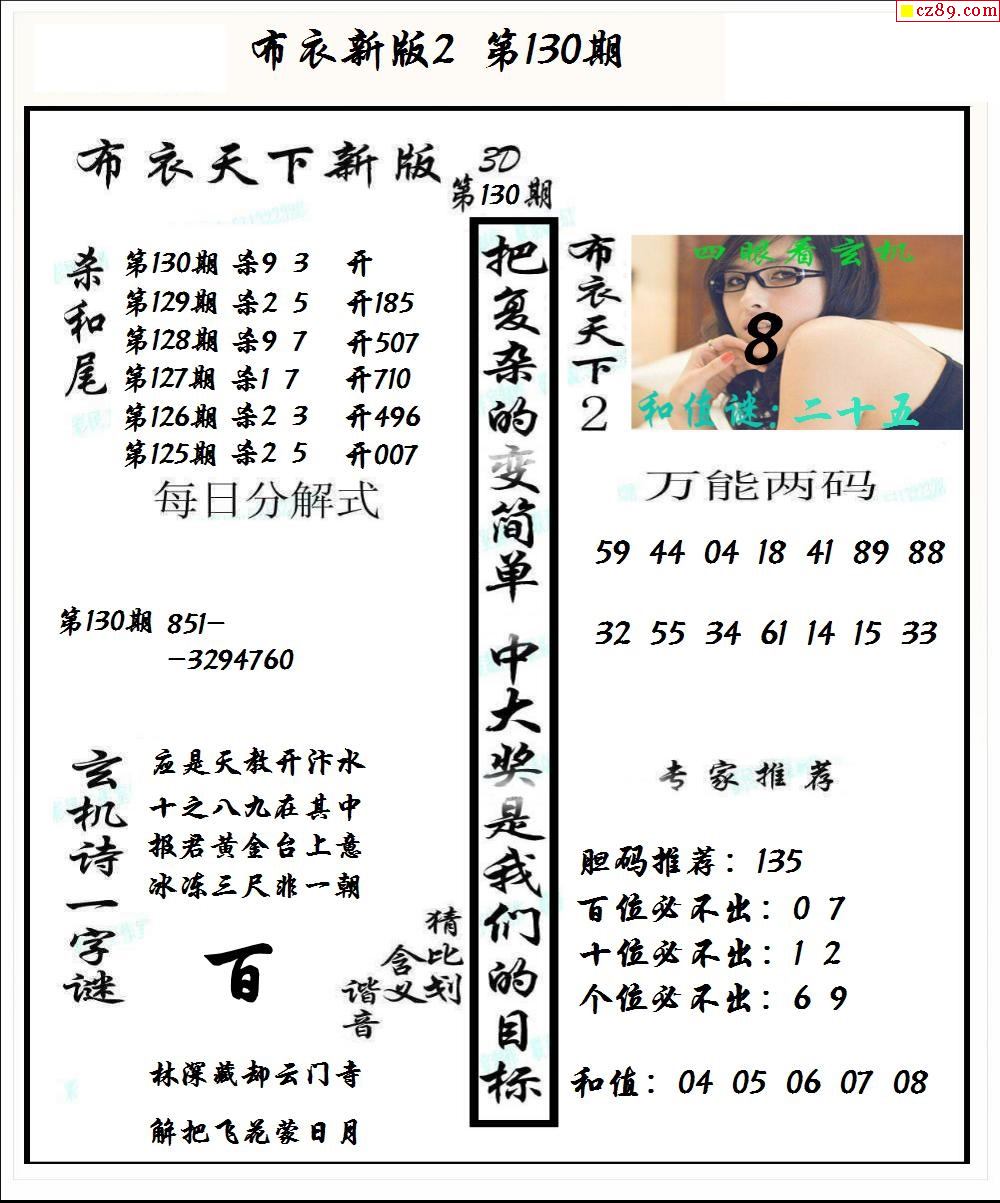 cz89.com
布衣新版2 第130期
布衣天下新版 3D
第130期
杀和尾
第130期 杀9 3 开
第129期 杀2 5 开185
第128期 杀9 7 开507
第127期 杀1 7 开710
第126期 杀2 3 开496
第125期 杀2 5 开007
每日分解式
第130期 851-
-3294760
玄机诗一字谜
应是天教开汴水
十之八九在其中
报君黄金台上意
冰冻三尺非一朝
百
猜比划
含义
谐音
林深藏却云门寺
解把飞花蒙日月
把复杂的变简单 中大奖是我们的目标
布衣天下2
四眼看玄机
8
和值谜:二十五
万能两码
59 44 04 18 41 89 88
32 55 34 61 14 15 33
专家推荐
胆码推荐：135
百位必不出：0 7
十位必不出：1 2
个位必不出：6 9
和值：04 05 06 07 08